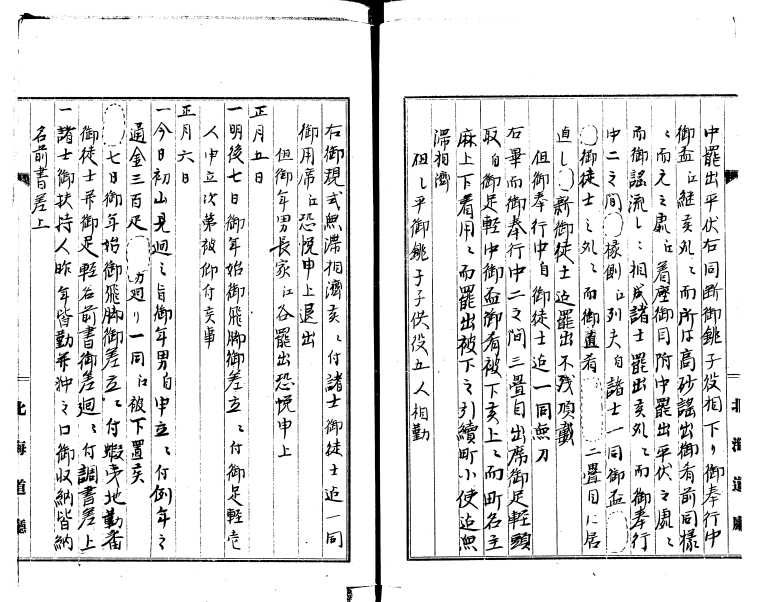 中罷出平伏右同断御銚子役相下り御奉行中
御盃江経亥外ミ而所は高砂謡出御肴前同様
ミ而元之處江着座御目附中罷出平伏之處ミ
而御謡流しミ相成諸士罷出亥外ミ而御奉行
中二之間 椽側江列夫自諸士一同御盃
御徒士之外ミ而御直肴 二畳目に居
直し 新御徒士迄罷出不残頂戴
但御奉行中自御徒士迄一同無刀
右畢而御奉行中二之間三畳目出席御足軽頭
取自御足軽中御盃御肴被下亥上ミ而町名主
麻上下着用ミ而罷出被下之引續町小使迄無
滞相濟
但し平御銚子子供役五人相勤
北海道廳
右御規式無滞相濟亥ミ付諸士御徒士迄一同
御用席江恐悦申上退出
但御年男長家江各罷出恐悦申上
正月五日
一明後七日御年始御飛脚御差立ミ付御足軽壱
人申立次第被仰付亥事
正月六日
一今日初山見廻之旨御年男自申立ミ付例年之
通金三百疋 廻り一同江被下置亥
七日御年始御飛脚御差立ミ付蝦夷地勤番
御徒士并御足軽名前書御差廻ミ付調書差上
一諸士御扶持人昨年皆勤并沖之口御収納皆納
名前書差上
北海道廳